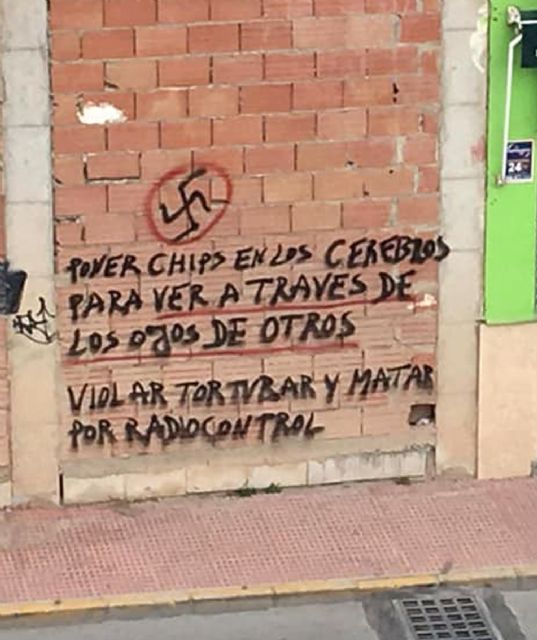 PONER CHIPS EN LOS CEREBROS
PARA VER A TRAVES DE
LOS OJOS DE OTROS
VIOLAR TORTURAR Y MATAR
POR RADIOCONTROL
24